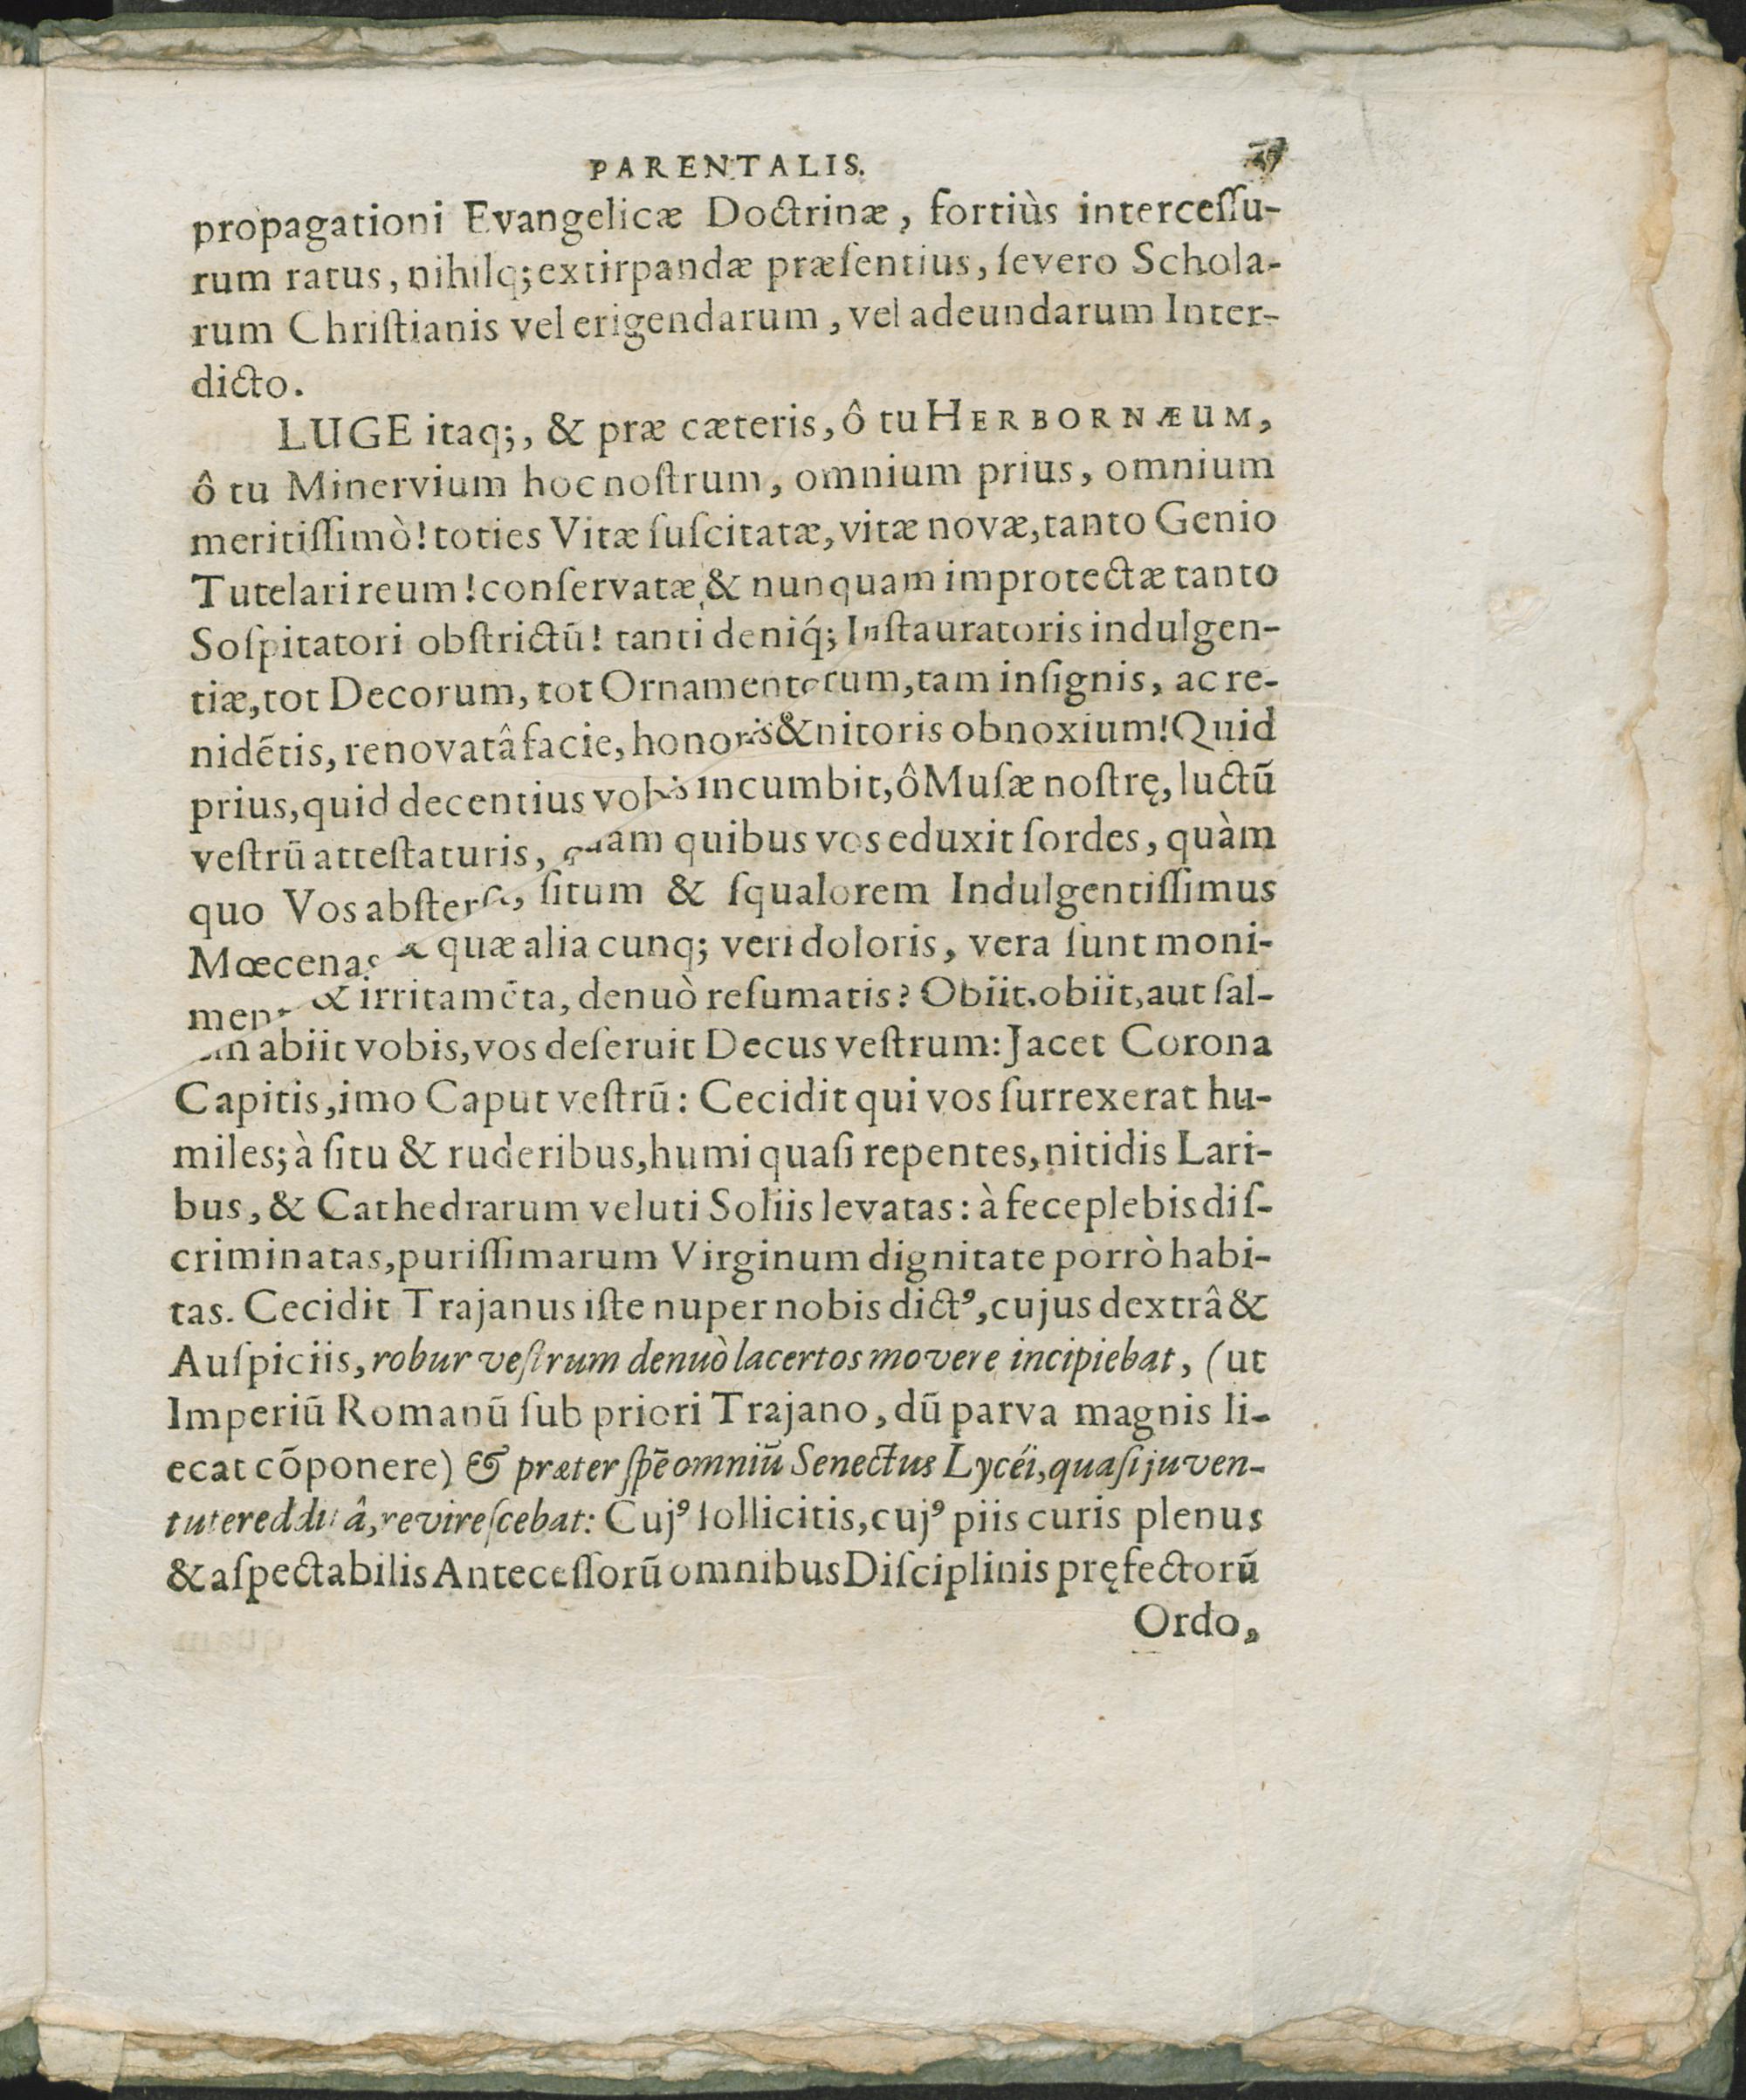 PARENTALIS.
propagationi Evangelicæ Doctrinæ, fortiùs interceſſu-
rum ratus, nihilq; extirpandæ præſentius, ſevero Schola-
rum Chriſtianis vel erigendarum, vel adeundarum Inter-
dicto.
LUGE itaq;, & præ cæteris, ô tu HERBORNÆUM,
ô tu Minervium hoc noſtrum, omnium prius, omnium
meritiſſimò! toties Vitæ ſuſcitatæ, vitæ novæ, tanto Genio
Tutelari reum! conſervatæ, & nunquam improtectæ tanto
Soſpitatori obſtrictū! tanti deniq́; Inſtauratoris indulgen-
tiæ, tot Decorum, tot Ornamentorum, tam inſignis, ac re-
nidētis, renovatâ facie, honoris & nitoris obnoxium! Quid
prius, quid decentius vobis incumbit, ô Muſæ noſtrę, luctū
veſtrū atteſtaturis, quam quibus vos eduxit ſordes, quàm
quo Vos abſterſit, ſitum & ſqualorem Indulgentiſſimus
Mœcenas & quæ alia cunq; veri doloris, vera ſunt moni-
& irritamēta, denuò reſumatis? Obiit, obiit, aut ſal-
abiit vobis, vos deſeruit Decus veſtrum: Jacet Corona
Capitis, imo Caput veſtrū: Cecidit qui vos ſurrexerat hu-
miles; à ſitu & ruderibus, humi quaſi repentes, nitidis Lari-
bus, & Cathedrarum veluti Soliis levatas: à fece plebis diſ-
criminatas, puriſſimarum Virginum dignitate porrò habi-
tas. Cecidit Trajanus iſte nuper nobis dictꝰ, cujus dextrâ &
Auſpiciis, robur veſtrum denuò lacertos movere incipiebat, (ut
Imperiū Romanū ſub priori Trajano, dū parva magnis li-
ecat cōponere) & præter ſpē omniū Senectus Lycéi, quaſi juven-
tute redditâ, revireſcebat: Cujꝰ ſollicitis, cujꝰ piis curis plenus
& aſpectabilis Anteceſſorū omnibus Diſciplinis pręfectorū
Ordo,